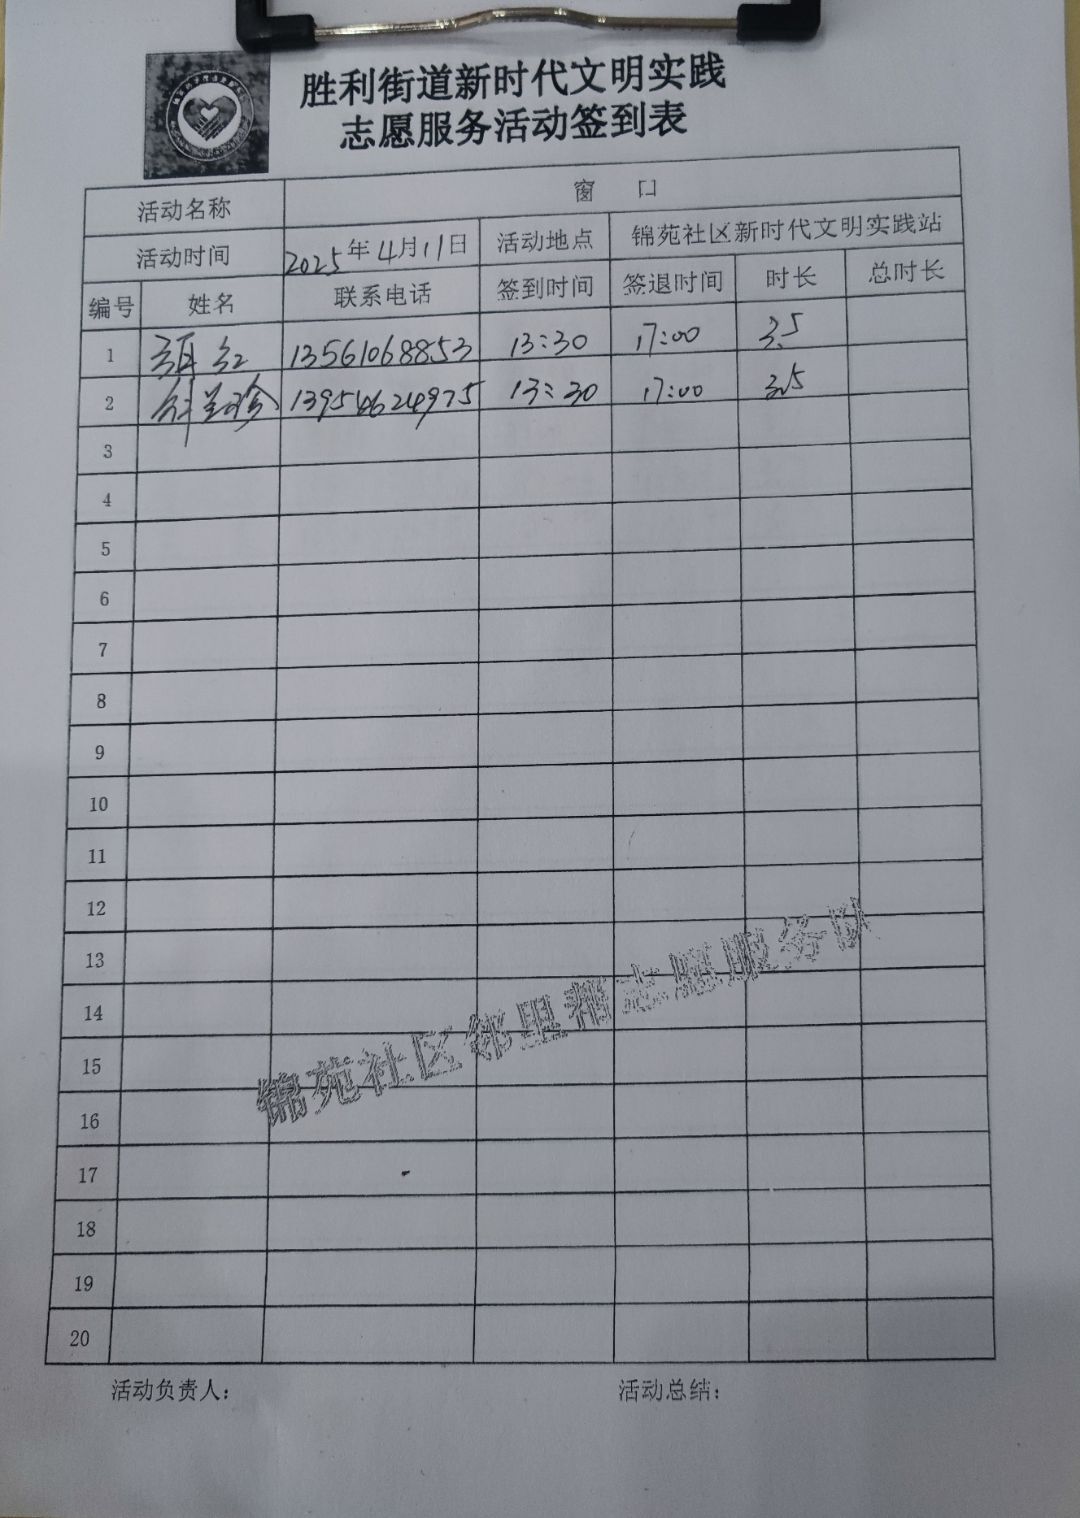 胜利街道新时代文明实践
志愿服务活动签到表
活动名称 窗 口
活动时间 2025年4月11日 活动地点 锦苑社区新时代文明实践站
编号 姓名 联系电话 签到时间 签退时间 时长 总时长
1 红 13561068853 13:30 17:00 3.5
2 13954624975 13:30 17:00 3.5
3
4
5
6
7
8
9
10
11
12
13
14
15
16
17
18
19
20
锦苑社区邻里帮志愿服务队
活动负责人： 活动总结：